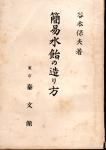 谷本保夫著
簡易水飴の造り方
東京 泰文館